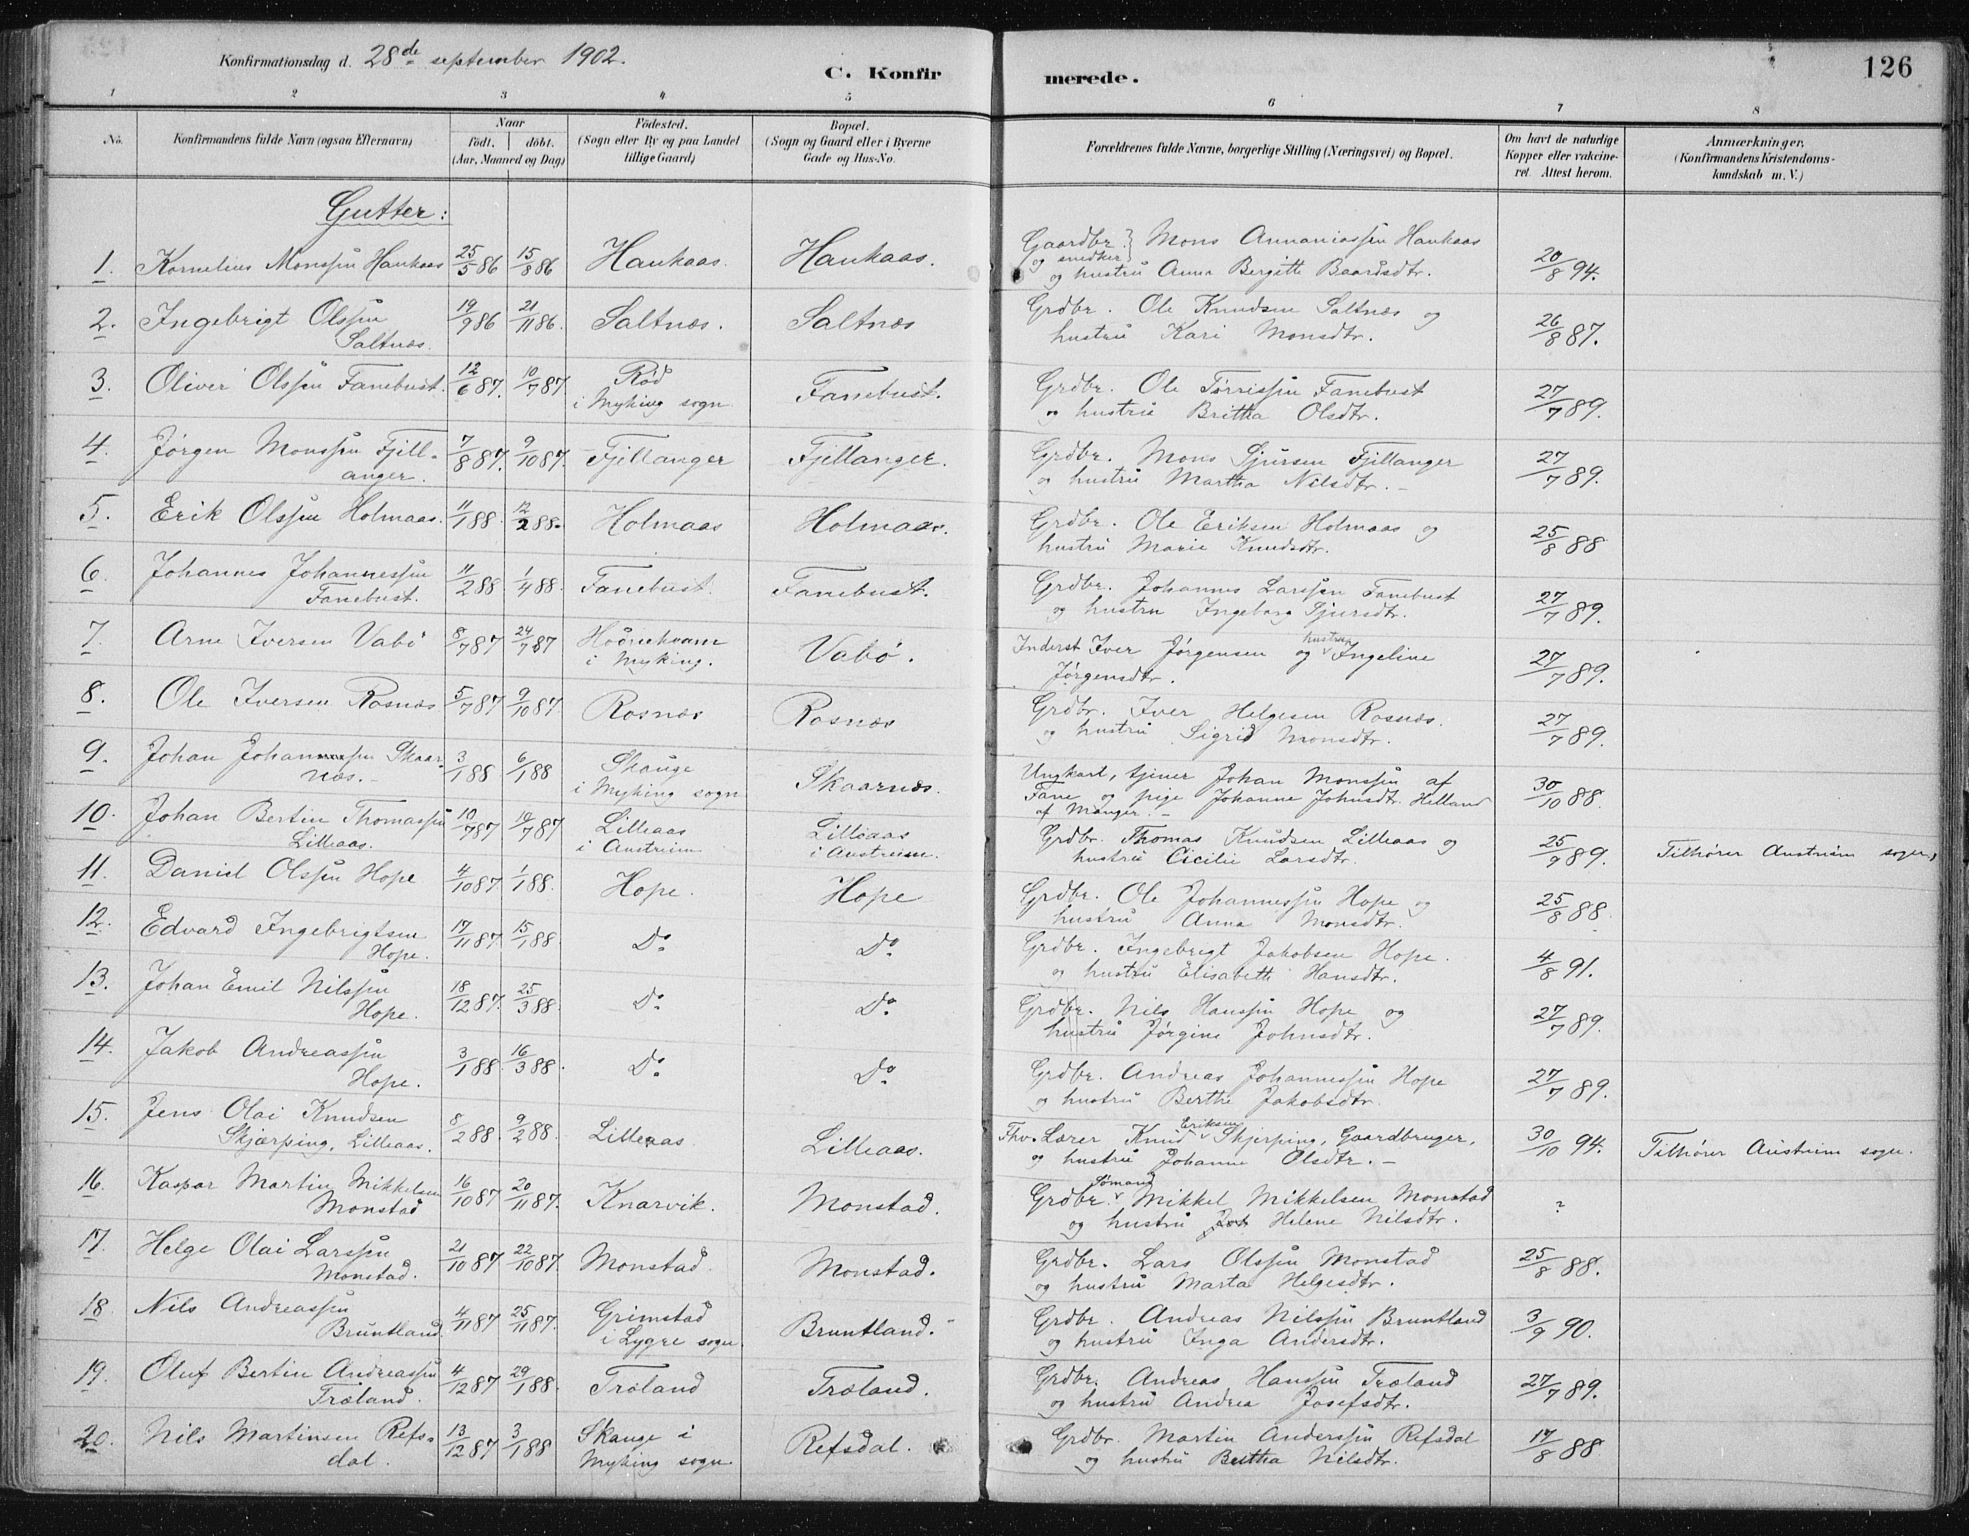 Konfirmationsdag d. 28de september 1902.
C. Konfirmerede.
126
1 2 3 4 5 6 7 8
No.
Konfirmandens fulde Navn (ogsaa Efternavn)
Naar
født. døbt.
(Aar, Maaned og Dag)
Fødested.
(Sogn eller By og paa Landet
tillige Gaard)
Bopæl.
(Sogn og Gaard eller i Byerne
Gade og Hus-No.
Forældrenes fulde Navne, borgerlige Stilling (Næringsvei) og Bopæl.
Om havt de naturlige
Kopper eller vakcine-
ret. Attest herom.
Anmærkninger,
(Konfirmandens Kristendoms-
kundskab m. V.)
Gutter:
1. Kornelius Monssen Haukaas 25/5 86 15/8 86 Haukaas. Haukaas. Gaardbr. og snedker Mons Annaniassen Haukaas
og hustru Anna Bergitte Baardsdtr. 20/8 94.
2. Ingebrigt Olssen 19/9 86 21/11 86. Saltnæs. Saltnæs Grdbr. Ole Knudsen Saltnæs og
Saltnæs. hustru Kari Monsdtr. 26/8 87.
3. Oliver Olssen Fanebust. 12/6 87. 10/7 87 Rød Fanebust. Grdbr. Ole Tørrissen Fanebust
i Myking sogn og hustru Britha Olsdtr. 27/7 89.
4. Jørgen Monssen Fjell- 7/8 87. 9/10 87. Fjellanger Fjellanger. Grdbr. Mons Sjursen Fjellanger
anger. og hustru Martha Nilsdtr. - 27/7 89.
5. Erik Olssen Holmaas. 11/1 88. 12/2 88. Holmaas Holmaas. Grdbr. Ole Eriksen Holmaas og
hustru Marie Knudsdtr. 25/8 88
6. Johannes Johannessen 11/2 88. 1/4 88. Fanebust. Fanebust. Grdbr. Johannes Larssen Fanebust
Fanebust. og hustru Ingeborg Sjursdtr. 27/7 89.
7. Arne Iversen Vabø 8/7 87 24/7 87 i Myking. Vabø. Inderst Iver Jørgensen og hustru Ingeline
Jørgensdtr. 27/7 89.
8. Ole Iversen Rosnæs 5/7 87 9/10 87. Rosnæs Rosnæs Grdbr. Iver Helgesen Rosnæs.
og hustru Sigrid Monsdtr. 27/7 89.
9. Johan Johanssen Skaar- 3/1 88. 6/1 88 Skauge Skaarnæs. Ungkarl, tjener Johan Monssen af
næs. - i Myking sogn Fane og pige Johanne Johnsdtr. Helland
af Manger. - 30/10 88.
10. Johan Bertin Thomassen 10/7 87 19/7 87 Lilleaas Lilleaas Grdbr. Thomas Knudsen Lilleaas og
Lilleaas. i Austreim i Austreim. hustru Cicilie Larsdtr. 25/9 89. Tilhører Austreim sogn,
11. Daniel Olssen Hope 4/10 87. 1/1 88. Hope. Hope Grdbr. Ole Johannessen Hope og
hustru Anna Monsdtr. 25/8 88.
12. Edvard Ingebrigtsen 17/11 87. 15/1 88. Do Do Grdbr. Ingebrigt Jakobsen Hope.
Hope. og hustru Elisabeth Hansdtr. 4/8 91.
13. Johan Emil Nilssen 18/12 87. 25/3 88. Do Do Grdbr. Nils Hanssen Hope og
Hope. hustru Jørgine Johnsdtr. 27/7 89.
14. Jakob Andreassen 3/1 88. 16/3 88. Do Do Grdbr. Andreas Johannessen Hope
Hope. og hustru Berthe Jakobsdtr. 27/7 89.
15. Jens Olai Knudsen 8/2 88. 9/2 88. Lilleaas Lilleaas. Fhv. Lærer Knud Eriksen Skjerping, Gaardbruger,
Skjærping, Lilleaas. og hustru Johanne Olsdtr. - 30/10 94. Tilhører Austreim sogn.
16. Kaspar Martin Mikkelsen 16/10 87 20/11 87. Knarvik. Monstad. Grdbr. Sømand Mikkel Mikkelsen Monstad
Monstad og hustru Helene Nilsdtr. ?
17. Helge Olai Larssen 21/10 87 22/10 87. Monstad. Monstad. Grdbr. Lars Olssen Monstad
Monstad. og hustru Marta Helgesdtr. 25/8 88.
18. Nils Andreassen 4/11 87 25/11 87. Grimstad Bruntland. Grdbr. Andreas Nilssen Bruntland
Bruntland. i Lygre sogn. og hustru Inga Andersdtr. 3/9 90.
19. Oluf Bertin Andreassen 4/12 87 29/1 88. Træland Træland. Grdbr. Andreas Hanssen Træland
Træland. og hustru Andrea Josefsdtr. 27/7 89.
20. Nils Martinsen Refs- 13/12 87 3/1 88 Skauge i Refsdal. Grdbr. Martin Anderssen Refsdal
dal. Myking sogn og hustru Britha Nilsdtr. 17/8 88